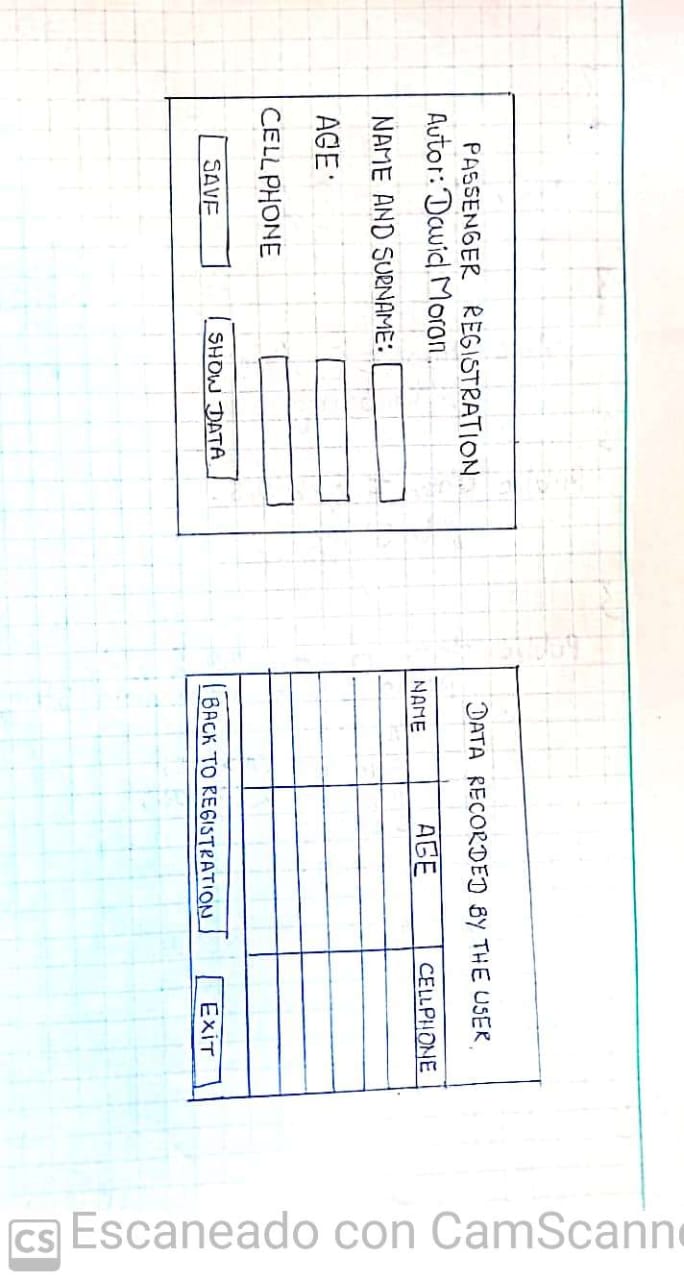 PASSENGER REGISTRATION.
Autor: David Moran.
NAME AND SURNAME:
AGE:
CELLPHONE
SAVE SHOW DATA
DATA RECORDED BY THE USER.
NAME AGE CELLPHONE
BACK TO REGISTRATION EXIT
CS Escaneado con CamScann